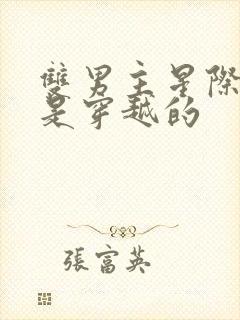 雙男主星際
是穿越的
張富英